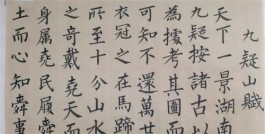 九疑山賦
天下一景湖南
九疑按諸古以
為據考其圖而
可知不還萬
衣冠之在馬蹄
所至十分山水
之奇戴堯天而
身屬堯民履舜
土而心知舜事